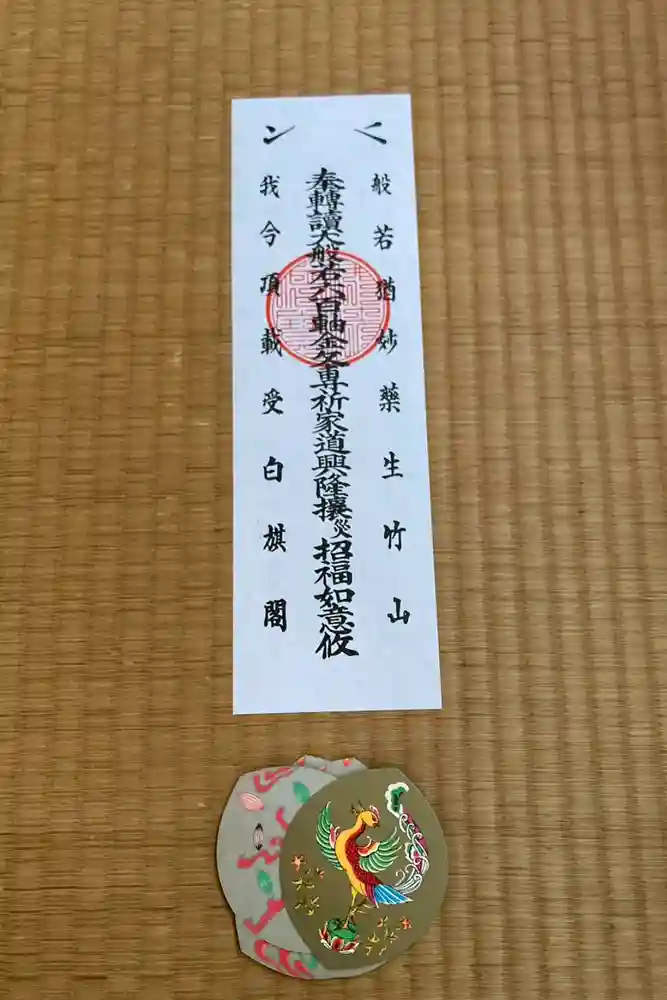 般若猶妙藥生竹山
奉轉讀大般若六百軸金文専祈家道興隆攘災招福如意攸
我今頂載受白旗閣